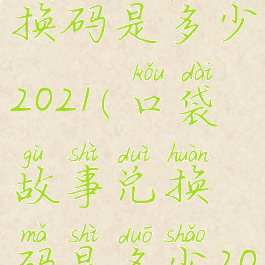 换码是多少
kǒu dài
2021(口袋
gù shì duì huàn
故事兑换
mǎ shì duō shǎo
码是多少20